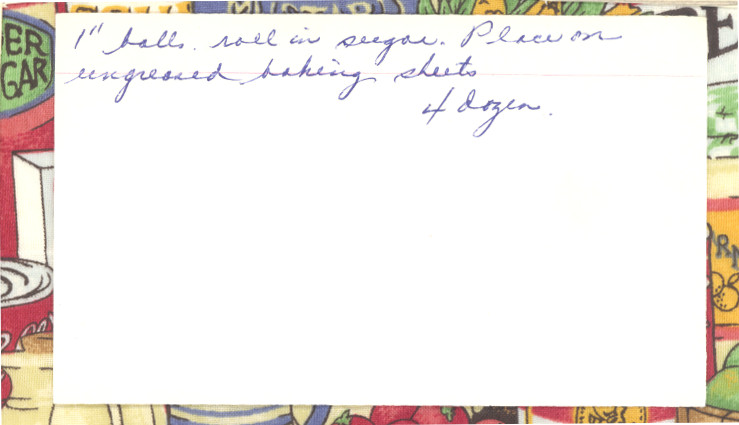 1" balls. roll in sugar. Place on
ungreased baking sheets
4 dozen.
ER
GAR